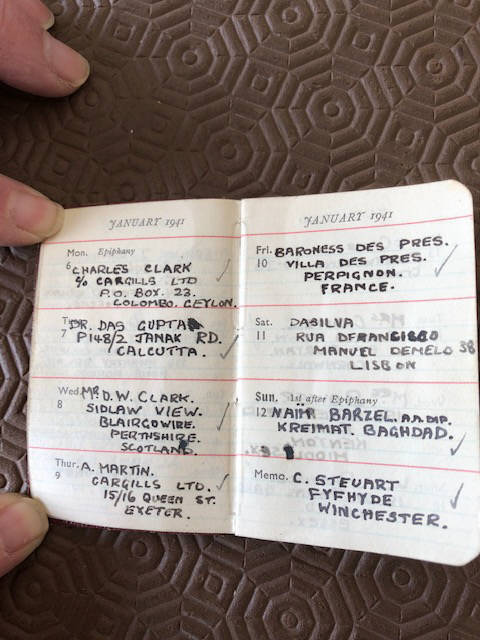 JANUARY 1941
Mon. Epiphany
6 CHARLES CLARK
c/o CARGILLS LTD
P.O. BOX. 23.
COLOMBO. CEYLON.
DR. DAS GUPTA
7 P148/2 JANAK RD.
CALCUTTA.
Wed. MR. D.W. CLARK.
8 SIDLAW VIEW.
BLAIRGOWIRE.
PERTHSHIRE.
SCOTLAND.
Thur. A. MARTIN.
9 CARGILLS LTD.
15/16 QUEEN ST.
EXETER.
JANUARY 1941
Fri. BARONESS DES PRES.
10 VILLA DES PRES.
PERPIGNON.
FRANCE.
Sat. DASILVA
11 RUA
MANUEL DEMELO 38
LISBON
Sun. 1st after Epiphany
12 BARZEL.
KREIMAT. BAGHDAD.
Memo. C. STEUART
FYFHYDE
WINCHESTER.